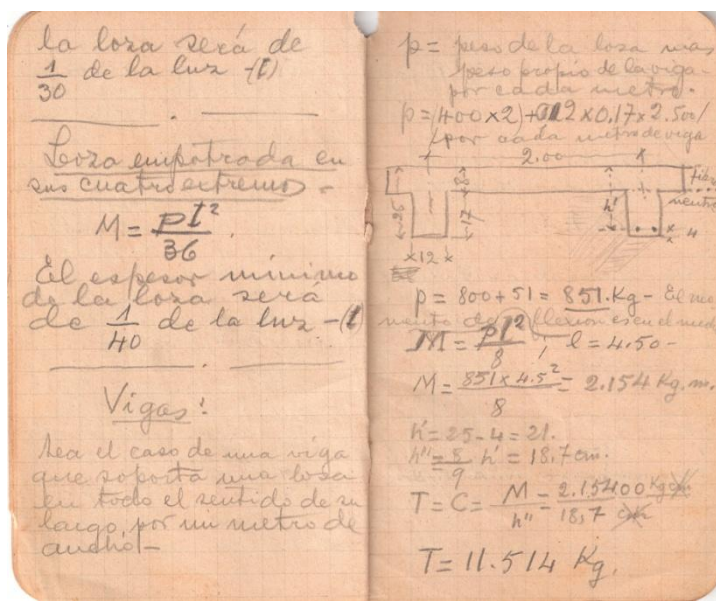 la loza será de
1/30 de la luz -(l)
Loza empotrada en
sus cuatro extremos -
M = pl²/36.
El espesor mínimo
de la loza será
de 1/40 de la luz -(l)
Vigas:
Sea el caso de una viga
que soporta una losa
en todo el sentido de su
largo, por un metro de
ancho. -
p = peso de la losa mas
peso propio de la viga -
por cada metro.
p = (400 x 2) + 0.12 x 0.17 x 2.500/
por cada metro de viga
2.00
8
25
17
h'
fibra
neutra
x12x
4
p = 800 + 51 = 851. Kg - El mo
mento de flexión es en el med
M = pl²/8, l = 4.50 -
M = 851 x 4.5²/8 = 2.154 Kg.m.
h' = 25 - 4 = 21.
h'' = 8/9 h' = 18.7 cm.
T = C = M/h'' = 2.15400 Kgcm/18,7 cm
T = 11.514 Kg.